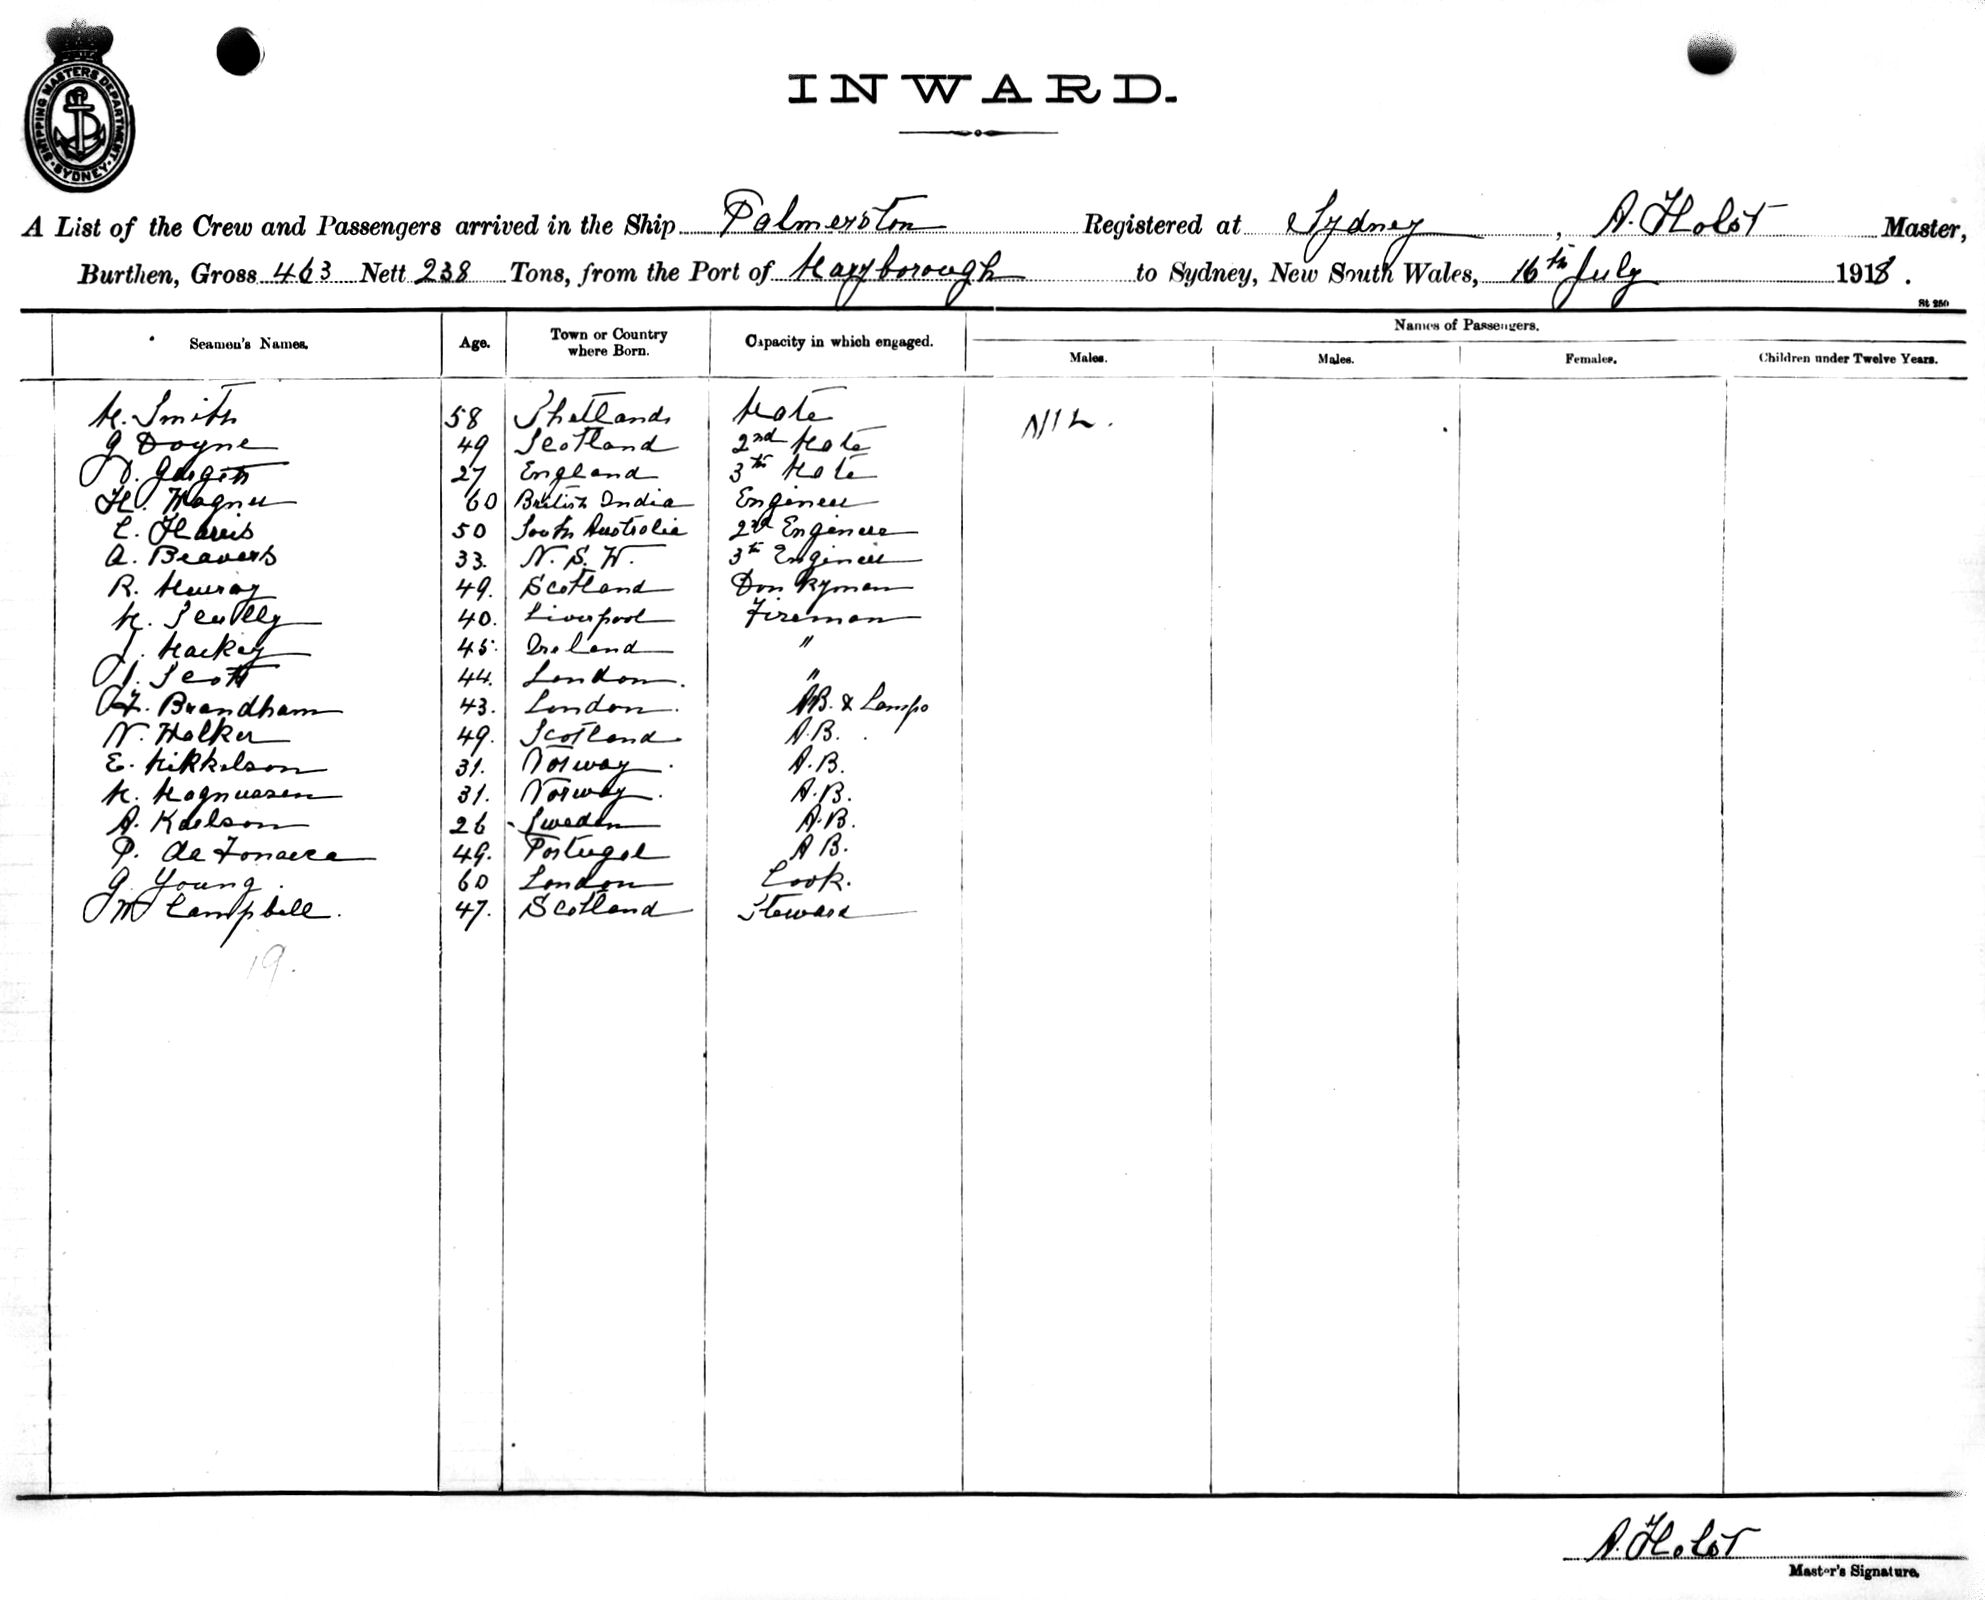 SHIPPING MASTERS DEPARTMENT · SYDNEY ·
INWARD.
A List of the Crew and Passengers arrived in the Ship Palmerston Registered at Sydney, A. Holst Master,
Burthen, Gross 463 Nett 238 Tons, from the Port of Maryborough to Sydney, New South Wales, 16th July 1918.
St 250
Seamen's Names. Age. Town or Country where Born. Capacity in which engaged. Names of Passengers.
Males. Males. Females. Children under Twelve Years.
M. Smith 58 Shetlands Mate NIL.
G Doyne 49 Scotland 2nd Mate
D. 27 England 3th Mate
H. Wagner 60 British India Engineer
C. Harris 50 South Australia 2nd Engineer
A. Beavers 33. N.S.W. 3th Engineer
R. Murray 49. Scotland Donkyman
M. Scully 40. Liverpool Fireman
J. Mackey 45. Ireland "
J. Scott 44. London. "
F. Brandham 43. London. AB. & Lamps
N. Walker 49. Scotland A.B.
E. Mikkelson 31. Norway. A.B.
M. Magnussen 31. Norway. A.B.
A. Kaelson 26 Sweden A.B.
P. da Fonseca 49. Portugal A B.
G. Young. 60 London Cook.
M Campbell. 47. Scotland Steward
19.
A. Holst
Master's Signature.